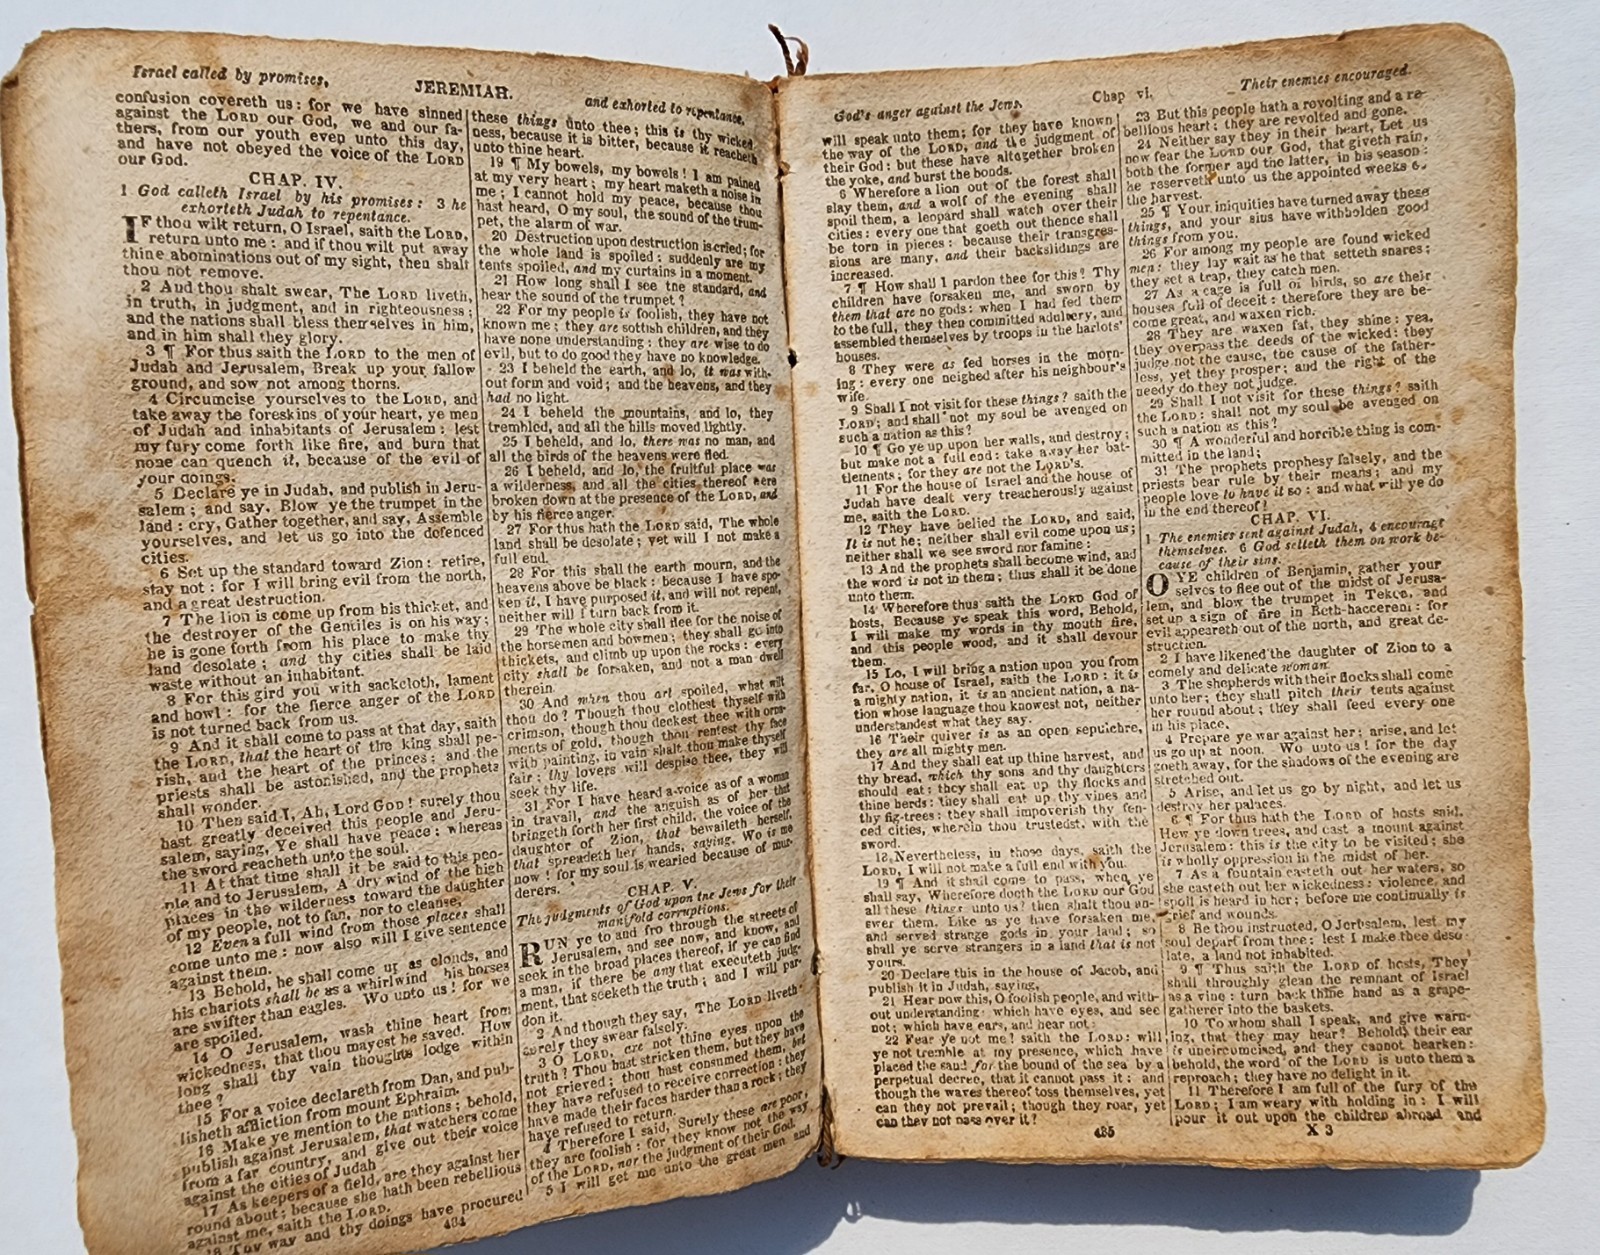 Israel called by promises,
JEREMIAH.
and exhorted to repentance.
confusion covereth us: for we have sinned
against the LORD our God, we and our fa-
thers, from our youth even unto this day,
and have not obeyed the voice of the LORD
our God.
CHAP. IV.
1 God calleth Israel by his promises: 3 he
exhorteth Judah to repentance.
IF thou wilt return, O Israel, saith the LORD,
return unto me: and if thou wilt put away
thine abominations out of my sight, then shalt
thou not remove.
2 And thou shalt swear, The LORD liveth,
in truth, in judgment, and in righteousness;
and the nations shall bless themselves in him,
and in him shall they glory.
3 ¶ For thus saith the LORD to the men of
Judah and Jerusalem, Break up your fallow
ground, and sow not among thorns.
4 Circumcise yourselves to the LORD, and
take away the foreskins of your heart, ye men
of Judah and inhabitants of Jerusalem: lest
my fury come forth like fire, and burn that
none can quench it, because of the evil of
your doings.
5 Declare ye in Judah, and publish in Jeru-
salem; and say, Blow ye the trumpet in the
land: cry, Gather together, and say, Assemble
yourselves, and let us go into the defenced
cities.
6 Set up the standard toward Zion: retire,
stay not: for I will bring evil from the north,
and a great destruction.
7 The lion is come up from his thicket, and
the destroyer of the Gentiles is on his way;
he is gone forth from his place to make thy
land desolate; and thy cities shall be laid
waste without an inhabitant.
8 For this gird you with sackcloth, lament
and howl: for the fierce anger of the LORD
is not turned back from us.
9 And it shall come to pass at that day, saith
the LORD, that the heart of the king shall pe-
rish, and the heart of the princes; and the
priests shall be astonished, and the prophets
shall wonder.
10 Then said I, Ah, Lord GOD! surely thou
hast greatly deceived this people and Jeru-
salem, saying, Ye shall have peace; whereas
the sword reacheth unto the soul.
11 At that time shall it be said to this peo-
ple and to Jerusalem, A dry wind of the high
places in the wilderness toward the daughter
of my people, not to fan, nor to cleanse,
12 Even a full wind from those places shall
come unto me: now also will I give sentence
against them.
13 Behold, he shall come up as clouds, and
his chariots shall be as a whirlwind his horses
are swifter than eagles. Wo unto us! for we
are spoiled.
14 O Jerusalem, wash thine heart from
wickedness, that thou mayest be saved. How
long shall thy vain thoughts lodge within
thee?
15 For a voice declareth from Dan, and pub-
lisheth affliction from mount Ephraim.
16 Make ye mention to the nations; behold,
publish against Jerusalem, that watchers come
from a far country, and give out their voice
against the cities of Judah
17 As keepers of a field, are they against her
round about; because she hath been rebellious
against me, saith the LORD.
18 Thy way and thy doings have procured
484
these things unto thee; this is thy wicked-
ness, because it is bitter, because it reacheth
unto thine heart.
19 ¶ My bowels, my bowels! I am pained
at my very heart; my heart maketh a noise in
me; I cannot hold my peace, because thou
hast heard, O my soul, the sound of the trum-
pet, the alarm of war.
20 Destruction upon destruction is cried; for
the whole land is spoiled: suddenly are my
tents spoiled, and my curtains in a moment.
21 How long shall I see the standard, and
hear the sound of the trumpet?
22 For my people is foolish, they have not
known me; they are sottish children, and they
have none understanding: they are wise to do
evil, but to do good they have no knowledge.
23 I beheld the earth, and lo, it was with-
out form and void; and the heavens, and they
had no light.
24 I beheld the mountains, and lo, they
trembled, and all the hills moved lightly.
25 I beheld, and lo, there was no man, and
all the birds of the heavens were fled.
26 I beheld, and lo, the fruitful place was
a wilderness, and all the cities thereof were
broken down at the presence of the LORD, and
by his fierce anger.
27 For thus hath the LORD said, The whole
land shall be desolate; yet will I not make a
full end.
28 For this shall the earth mourn, and the
heavens above be black: because I have spo-
ken it, I have purposed it, and will not repent,
neither will I turn back from it.
29 The whole city shall flee for the noise of
the horsemen and bowmen; they shall go into
thickets, and climb up upon the rocks: every
city shall be forsaken, and not a man dwell
therein.
30 And when thou art spoiled, what wilt
thou do? Though thou clothest thyself with
crimson, though thou deckest thee with orna-
ments of gold, though thou rentest thy face
with painting, in vain shalt thou make thyself
fair; thy lovers will despise thee, they will
seek thy life.
31 For I have heard a voice as of a woman
in travail, and the anguish as of her that
bringeth forth her first child, the voice of the
daughter of Zion, that bewaileth herself,
that spreadeth her hands, saying, Wo is me
now! for my soul is wearied because of mur-
derers.
CHAP. V.
The judgments of God upon the Jews for their
manifold corruptions.
RUN ye to and fro through the streets of
Jerusalem, and see now, and know, and
seek in the broad places thereof, if ye can find
a man, if there be any that executeth judg-
ment, that seeketh the truth; and I will par-
don it.
2 And though they say, The LORD liveth;
surely they swear falsely.
3 O LORD, are not thine eyes upon the
truth? Thou hast stricken them, but they have
not grieved; thou hast consumed them, but
they have refused to receive correction: they
have made their faces harder than a rock; they
have refused to return.
4 Therefore I said, Surely these are poor,
they are foolish: for they know not the way
of the LORD, nor the judgment of their God.
5 I will get me unto the great men and
God's anger against the Jews.
Chap vi.
Their enemies encouraged.
will speak unto them; for they have known
the way of the LORD, and the judgment of
their God: but these have altogether broken
the yoke, and burst the bonds.
6 Wherefore a lion out of the forest shall
slay them, and a wolf of the evening shall
spoil them, a leopard shall watch over their
cities: every one that goeth out thence shall
be torn in pieces: because their transgres-
sions are many, and their backslidings are
increased.
7 ¶ How shall I pardon thee for this? Thy
children have forsaken me, and sworn by
them that are no gods: when I had fed them
to the full, they then committed adultery, and
assembled themselves by troops in the harlots'
houses.
8 They were as fed horses in the morn-
ing: every one neighed after his neighbour's
wife.
9 Shall I not visit for these things? saith the
LORD; and shall not my soul be avenged on
such a nation as this?
10 ¶ Go ye up upon her walls, and destroy;
but make not a full end: take away her bat-
tlements; for they are not the LORD's.
11 For the house of Israel and the house of
Judah have dealt very treacherously against
me, saith the LORD.
12 They have belied the LORD, and said,
It is not he; neither shall evil come upon us;
neither shall we see sword nor famine:
13 And the prophets shall become wind, and
the word is not in them; thus shall it be done
unto them.
14 Wherefore thus saith the LORD God of
hosts, Because ye speak this word, Behold,
I will make my words in thy mouth fire,
and this people wood, and it shall devour
them.
15 Lo, I will bring a nation upon you from
far, O house of Israel, saith the LORD: it is
a mighty nation, it is an ancient nation, a na-
tion whose language thou knowest not, neither
understandest what they say.
16 Their quiver is as an open sepulchre,
they are all mighty men.
17 And they shall eat up thine harvest, and
thy bread, which thy sons and thy daughters
should eat: they shall eat up thy flocks and
thine herds: they shall eat up thy vines and
thy fig-trees: they shall impoverish thy fen-
ced cities, wherein thou trustedst, with the
sword.
18 Nevertheless, in those days, saith the
LORD, I will not make a full end with you.
19 ¶ And it shall come to pass, when ye
shall say, Wherefore doeth the LORD our God
all these things unto us? then shalt thou an-
swer them, Like as ye have forsaken me,
and served strange gods in your land; so
shall ye serve strangers in a land that is not
yours.
20 Declare this in the house of Jacob, and
publish it in Judah, saying,
21 Hear now this, O foolish people, and with-
out understanding; which have eyes, and see
not; which have ears, and hear not:
22 Fear ye not me? saith the LORD: will
ye not tremble at my presence, which have
placed the sand for the bound of the sea by a
perpetual decree, that it cannot pass it: and
though the waves thereof toss themselves, yet
can they not prevail; though they roar, yet
can they not pass over it?
485
23 But this people hath a revolting and a re-
bellious heart; they are revolted and gone.
24 Neither say they in their heart, Let us
now fear the LORD our God, that giveth rain,
both the former and the latter, in his season:
he reserveth unto us the appointed weeks of
the harvest.
25 ¶ Your iniquities have turned away these
things, and your sins have withholden good
things from you.
26 For among my people are found wicked
men: they lay wait as he that setteth snares;
they set a trap, they catch men.
27 As a cage is full of birds, so are their
houses full of deceit: therefore they are be-
come great, and waxen rich.
28 They are waxen fat, they shine: yea,
they overpass the deeds of the wicked: they
judge not the cause, the cause of the father-
less, yet they prosper; and the right of the
needy do they not judge.
29 Shall I not visit for these things? saith
the LORD: shall not my soul be avenged on
such a nation as this?
30 ¶ A wonderful and horrible thing is com-
mitted in the land;
31 The prophets prophesy falsely, and the
priests bear rule by their means; and my
people love to have it so: and what will ye do
in the end thereof!
CHAP. VI.
1 The enemies sent against Judah, 4 encourage
themselves. 6 God setteth them on work be-
cause of their sins.
O YE children of Benjamin, gather your
selves to flee out of the midst of Jerusa-
lem, and blow the trumpet in Tekoa, and
set up a sign of fire in Beth-haccerem: for
evil appeareth out of the north, and great de-
struction.
2 I have likened the daughter of Zion to a
comely and delicate woman
3 The shepherds with their flocks shall come
unto her; they shall pitch their tents against
her round about; they shall feed every one
in his place.
4 Prepare ye war against her; arise, and let
us go up at noon. Wo unto us! for the day
goeth away, for the shadows of the evening are
stretched out.
5 Arise, and let us go by night, and let us
destroy her palaces.
6 ¶ For thus hath the LORD of hosts said,
Hew ye down trees, and cast a mount against
Jerusalem: this is the city to be visited; she
is wholly oppression in the midst of her.
7 As a fountain casteth out her waters, so
she casteth out her wickedness: violence, and
spoil is heard in her; before me continually is
grief and wounds.
8 Be thou instructed, O Jerusalem, lest my
soul depart from thee: lest I make thee deso-
late, a land not inhabited.
9 ¶ Thus saith the LORD of hosts, They
shall throughly glean the remnant of Israel
as a vine: turn back thine hand as a grape-
gatherer into the baskets.
10 To whom shall I speak, and give warn-
ing, that they may hear? Behold, their ear
is uncircumcised, and they cannot hearken:
behold, the word of the LORD is unto them a
reproach; they have no delight in it.
11 Therefore I am full of the fury of the
LORD; I am weary with holding in: I will
pour it out upon the children abroad and
X 3